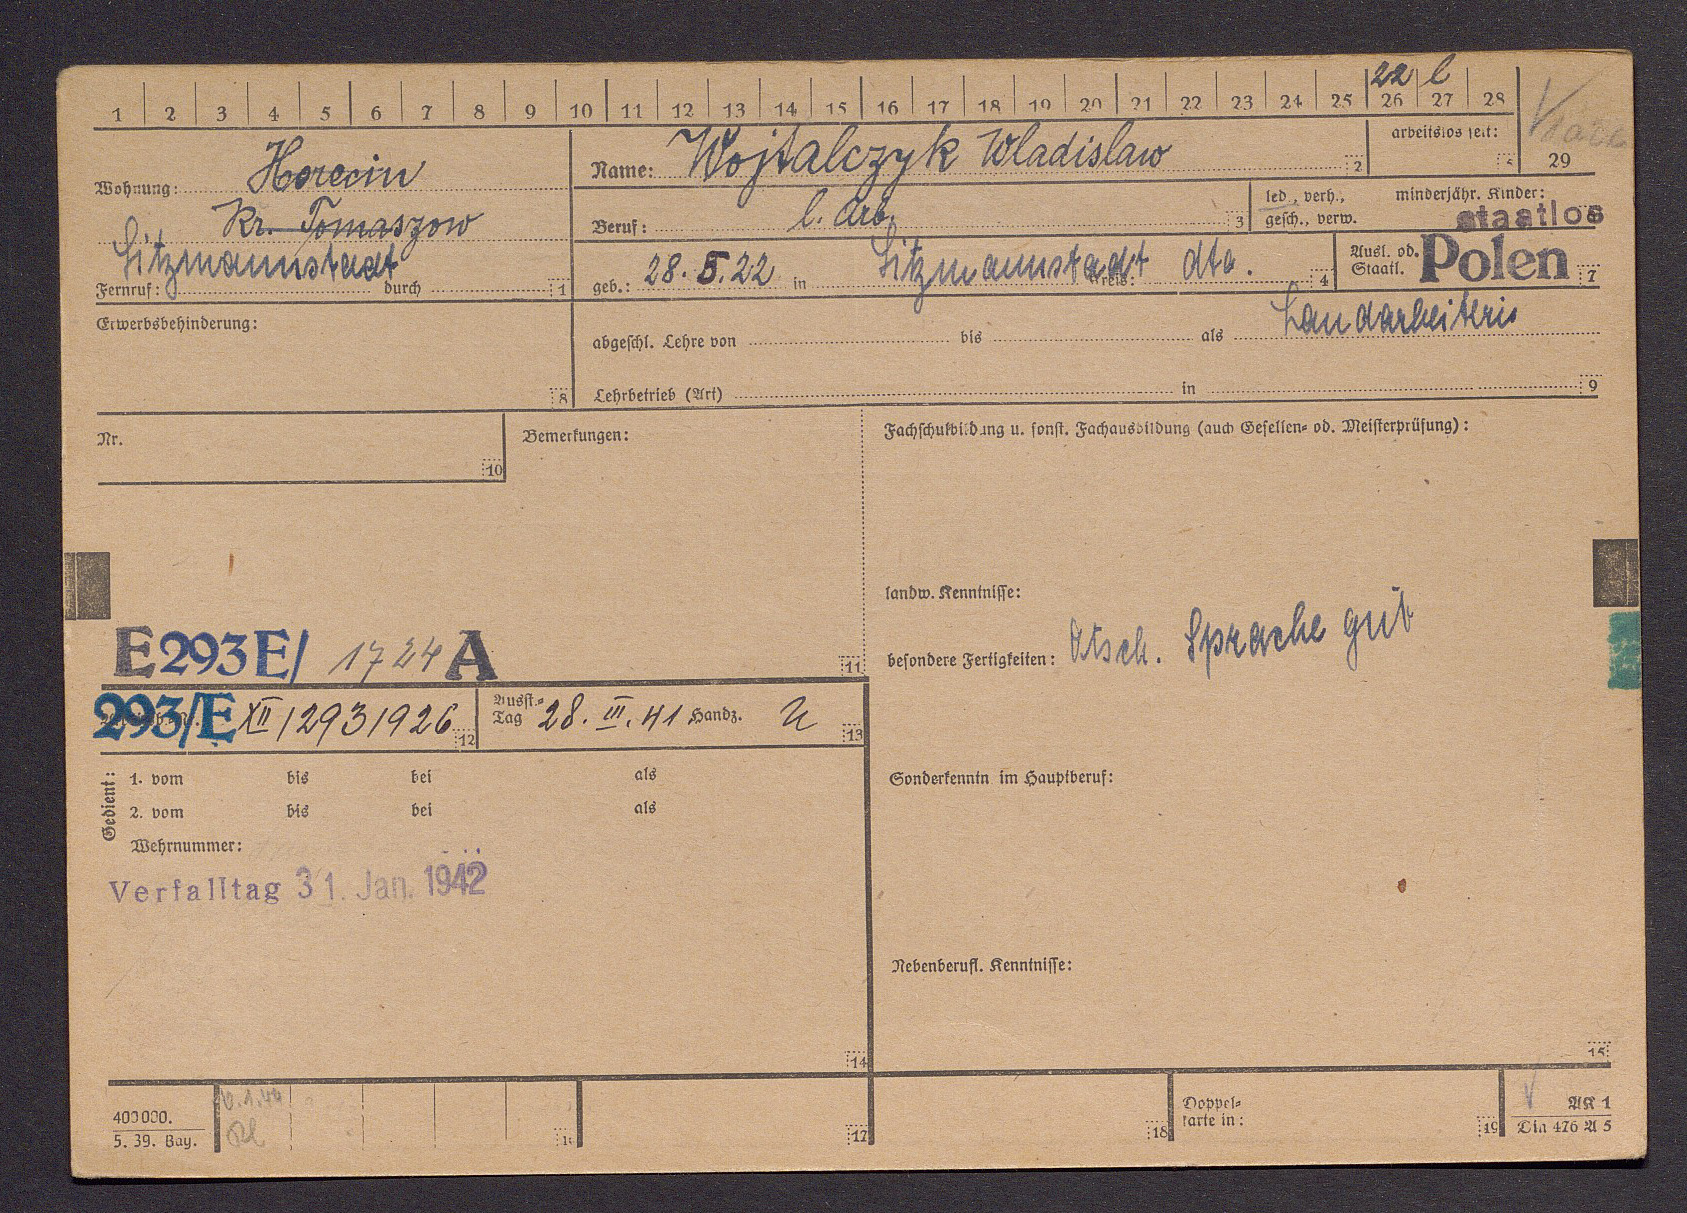 22 l
1 2 3 4 5 6 7 8 9 10 11 12 13 14 15 16 17 18 19 20 21 22 23 24 25 26 27 28
29
arbeitslos seit: 5
Wohnung: Horecin
Kr. Tomaszow
Litzmannstadt
Fernruf: durch 1
Name: Wojtalczyk Wladislaw 2
Beruf: l. Arb. 3
led., verh., gesch., verw.
minderjähr. Kinder:
staatlos
geb.: 28.5.22 in Litzmannstadt Kreis: dto. 4
Ausl. od. Staatl. Polen 7
Erwerbsbehinderung: 8
abgeschl. Lehre von bis als Landarbeiterin
Lehrbetrieb (Art) in 9
Nr. 10
Bemerkungen:
Fachschulbildung u. sonst. Fachausbildung (auch Gesellen- od. Meisterprüfung):
landw. Kenntnisse:
besondere Fertigkeiten: dtsch. Sprache gut
E293E/ 1724 A 11
293/E XII/293/926 12
Ausst.-Tag 28. III. 41 Handz. 13
Gedient:
1. vom bis bei als
2. vom bis bei als
Wehrnummer:
Verfalltag 31. Jan. 1942
14
Sonderkenntn im Hauptberuf:
Nebenberufl. Kenntnisse:
15
400000.
5. 39. Bay.
16
17
18
Doppel-
karte in: 19
AK 1
Din 476 A 5